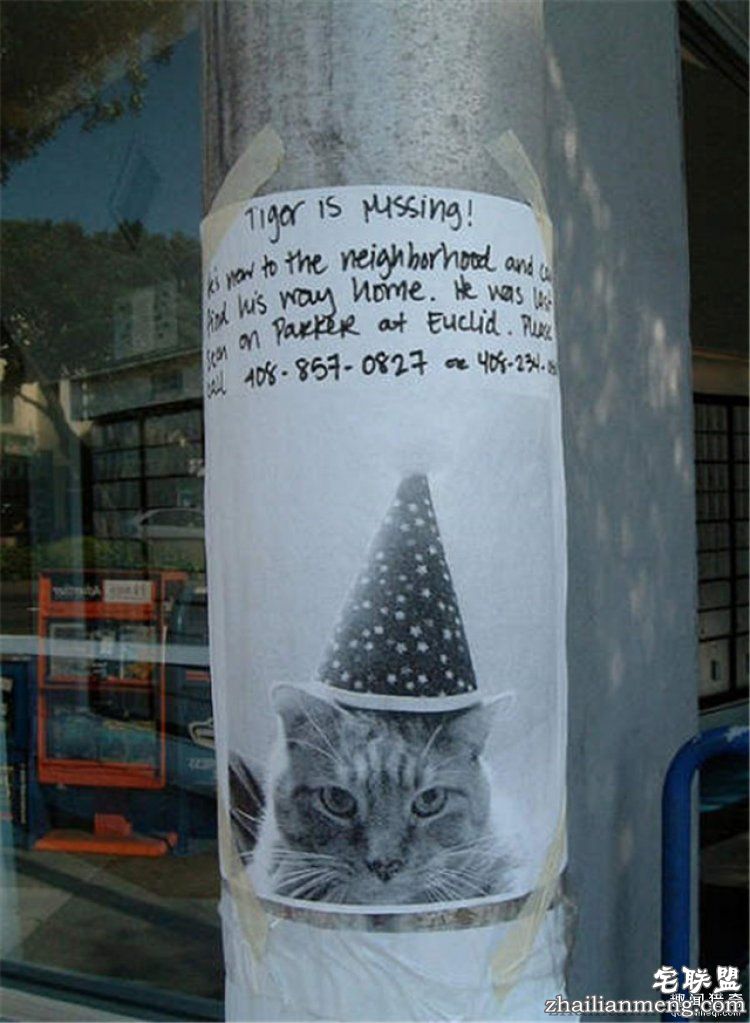 Tiger is Missing!
He's new to the neighborhood and
find his way home. He was last
seen on PARKER at Euclid. Please
call 408-857-0827 or 408-234-
宅联盟
zhailianmeng.com